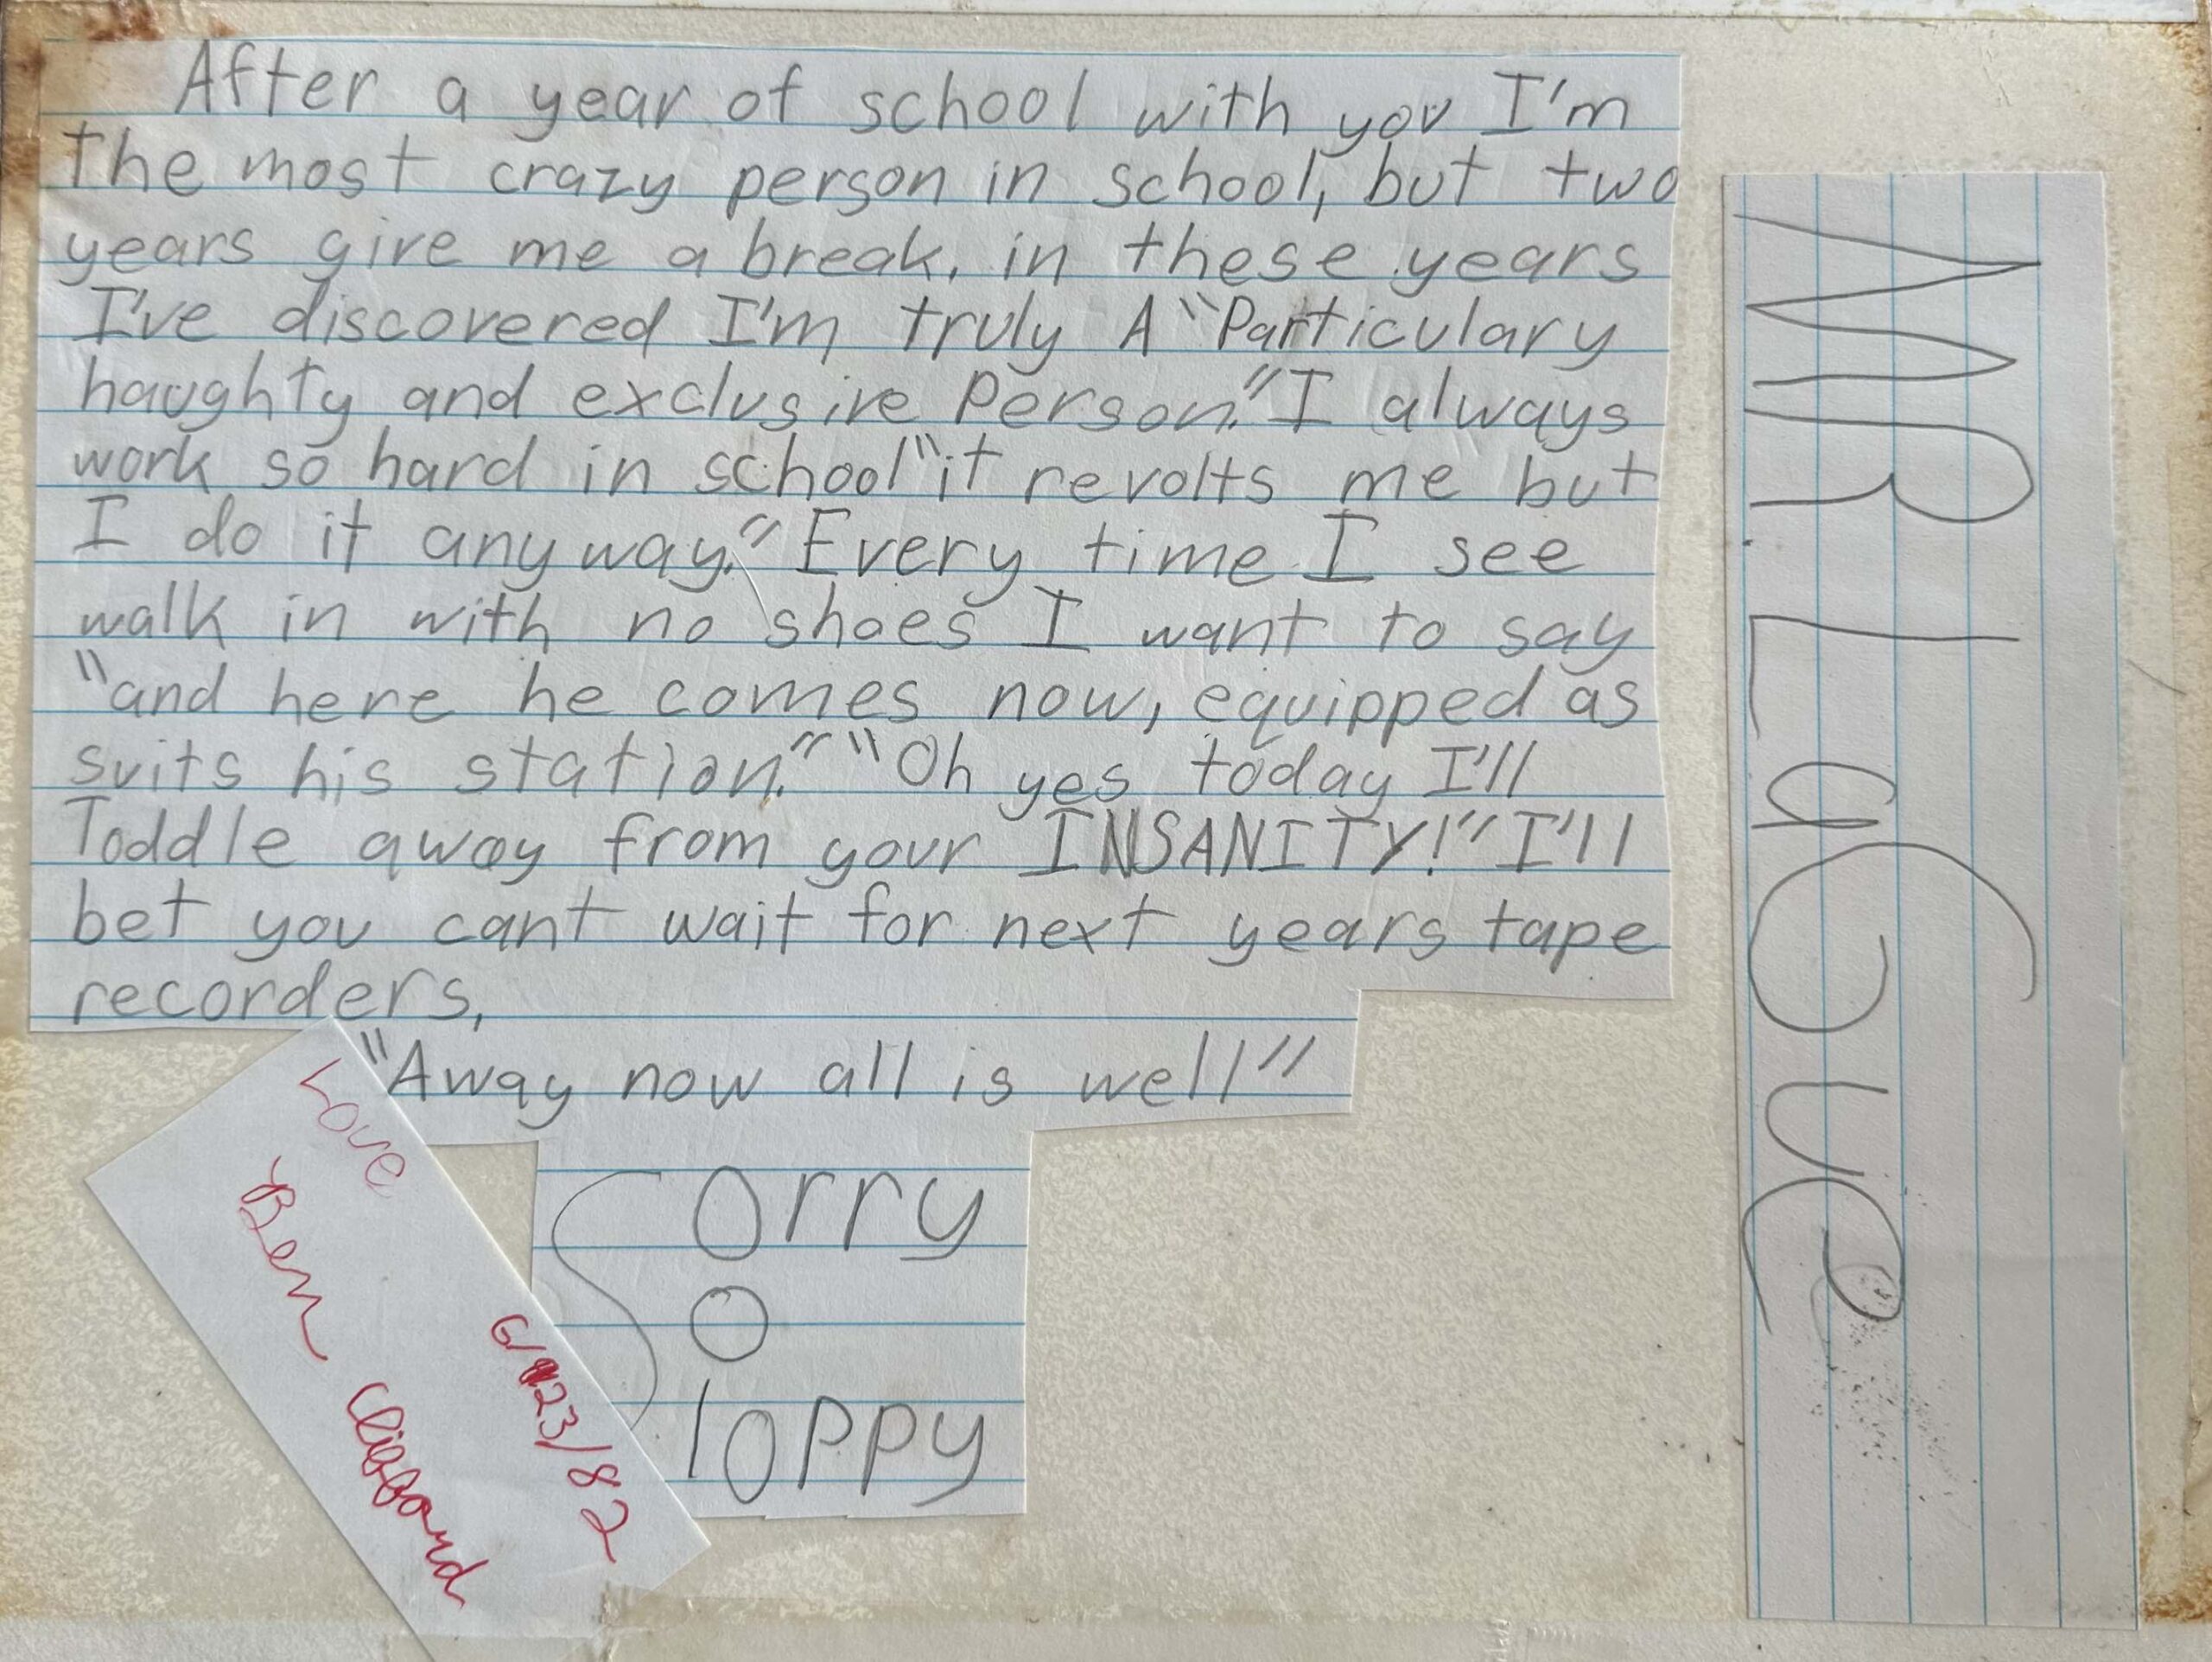 After a year of school with you I'm
the most crazy person in school, but two
years give me a break. in these years
I've discovered I'm truly A "Particulary
haughty and exclusive Person." I always
work so hard in school "it revolts me but
I do it anyway." Every time I see
walk in with no shoes I want to say
"and here he comes now, equipped as
suits his station." "Oh yes today I'll
Toddle away from your INSANITY!" I'll
bet you cant wait for next years tape
recorders,
"Away now all is well"
Sorry
o
loppy
Love
Ben
6/23/82
MR. LaGue